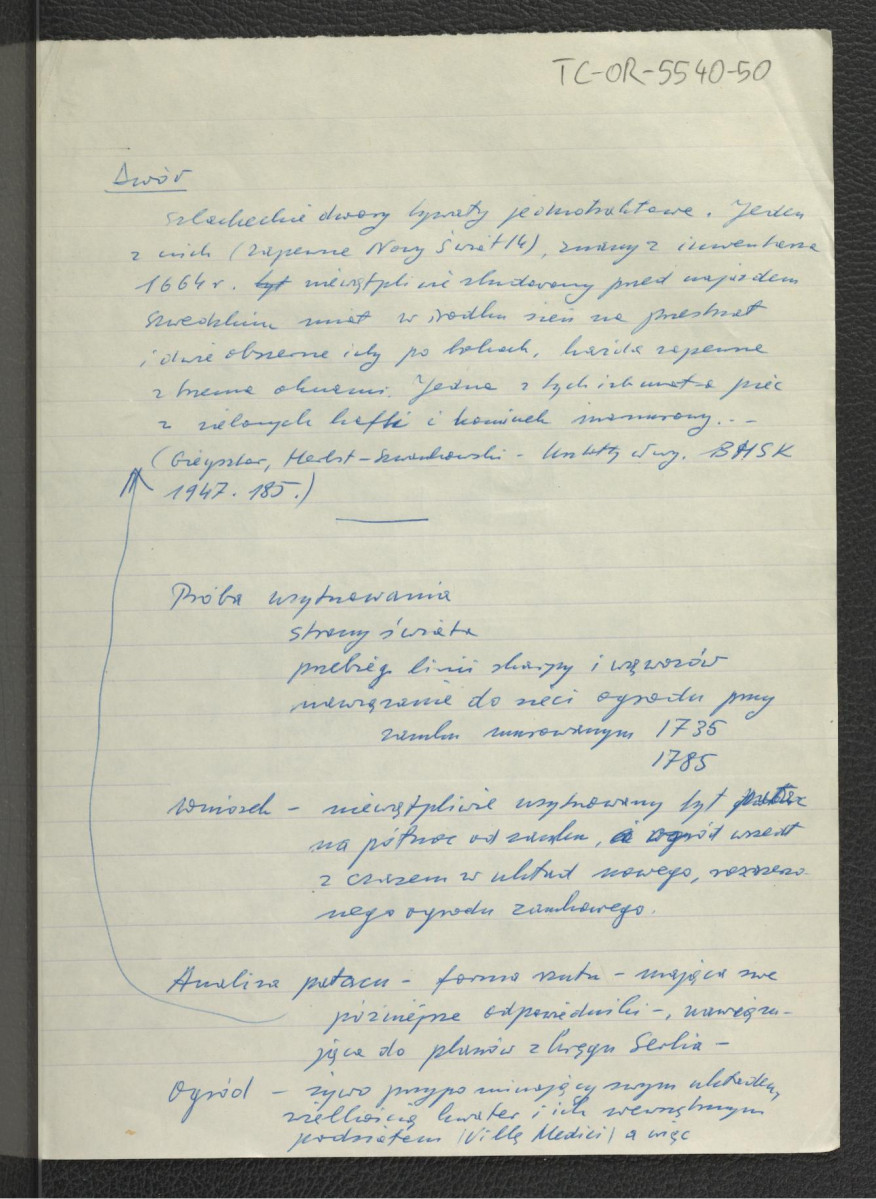 TC-OR-5540-50
Dwór
Szlacheckie dwory bywały jednotraktowe. Jeden
z nich (zapewne Nowy Świat 14), znany z inwentarza
1664 r. był niewątpliwie zbudowany przed najazdem
Szwedzkim miał w środku sień na przestrzał
i dwie obszerne izby po bokach, każda zapewne
z trzema oknami. Jedna z tych izb miała piec
z zielonych kafli i kominek murowany...
(Gieysztor, Herbst-Szwankowski - Kształty Wwy. BHSK
1947. 185.)
Próba usytuowania
strony świata
przebieg linii skarpy i wąwozów
nawiązanie do sieci ogrodu przy
zamku murowanym 1735
1785
Wniosek - niewątpliwie usytuowany był
na północ od zamku, a ogród wszedł
z czasem w układ nowego, rozszerzo-
nego ogrodu zamkowego.
Analiza pałacu - forma rzutu - mająca swe
późniejsze odpowiedniki -, nawiązu-
jąca do planów z kręgu Serlia -
Ogród - żywo przypominający swym układem,
wielkością kwater i ich wewnętrznym
podziałem (Villę Medici) a więc